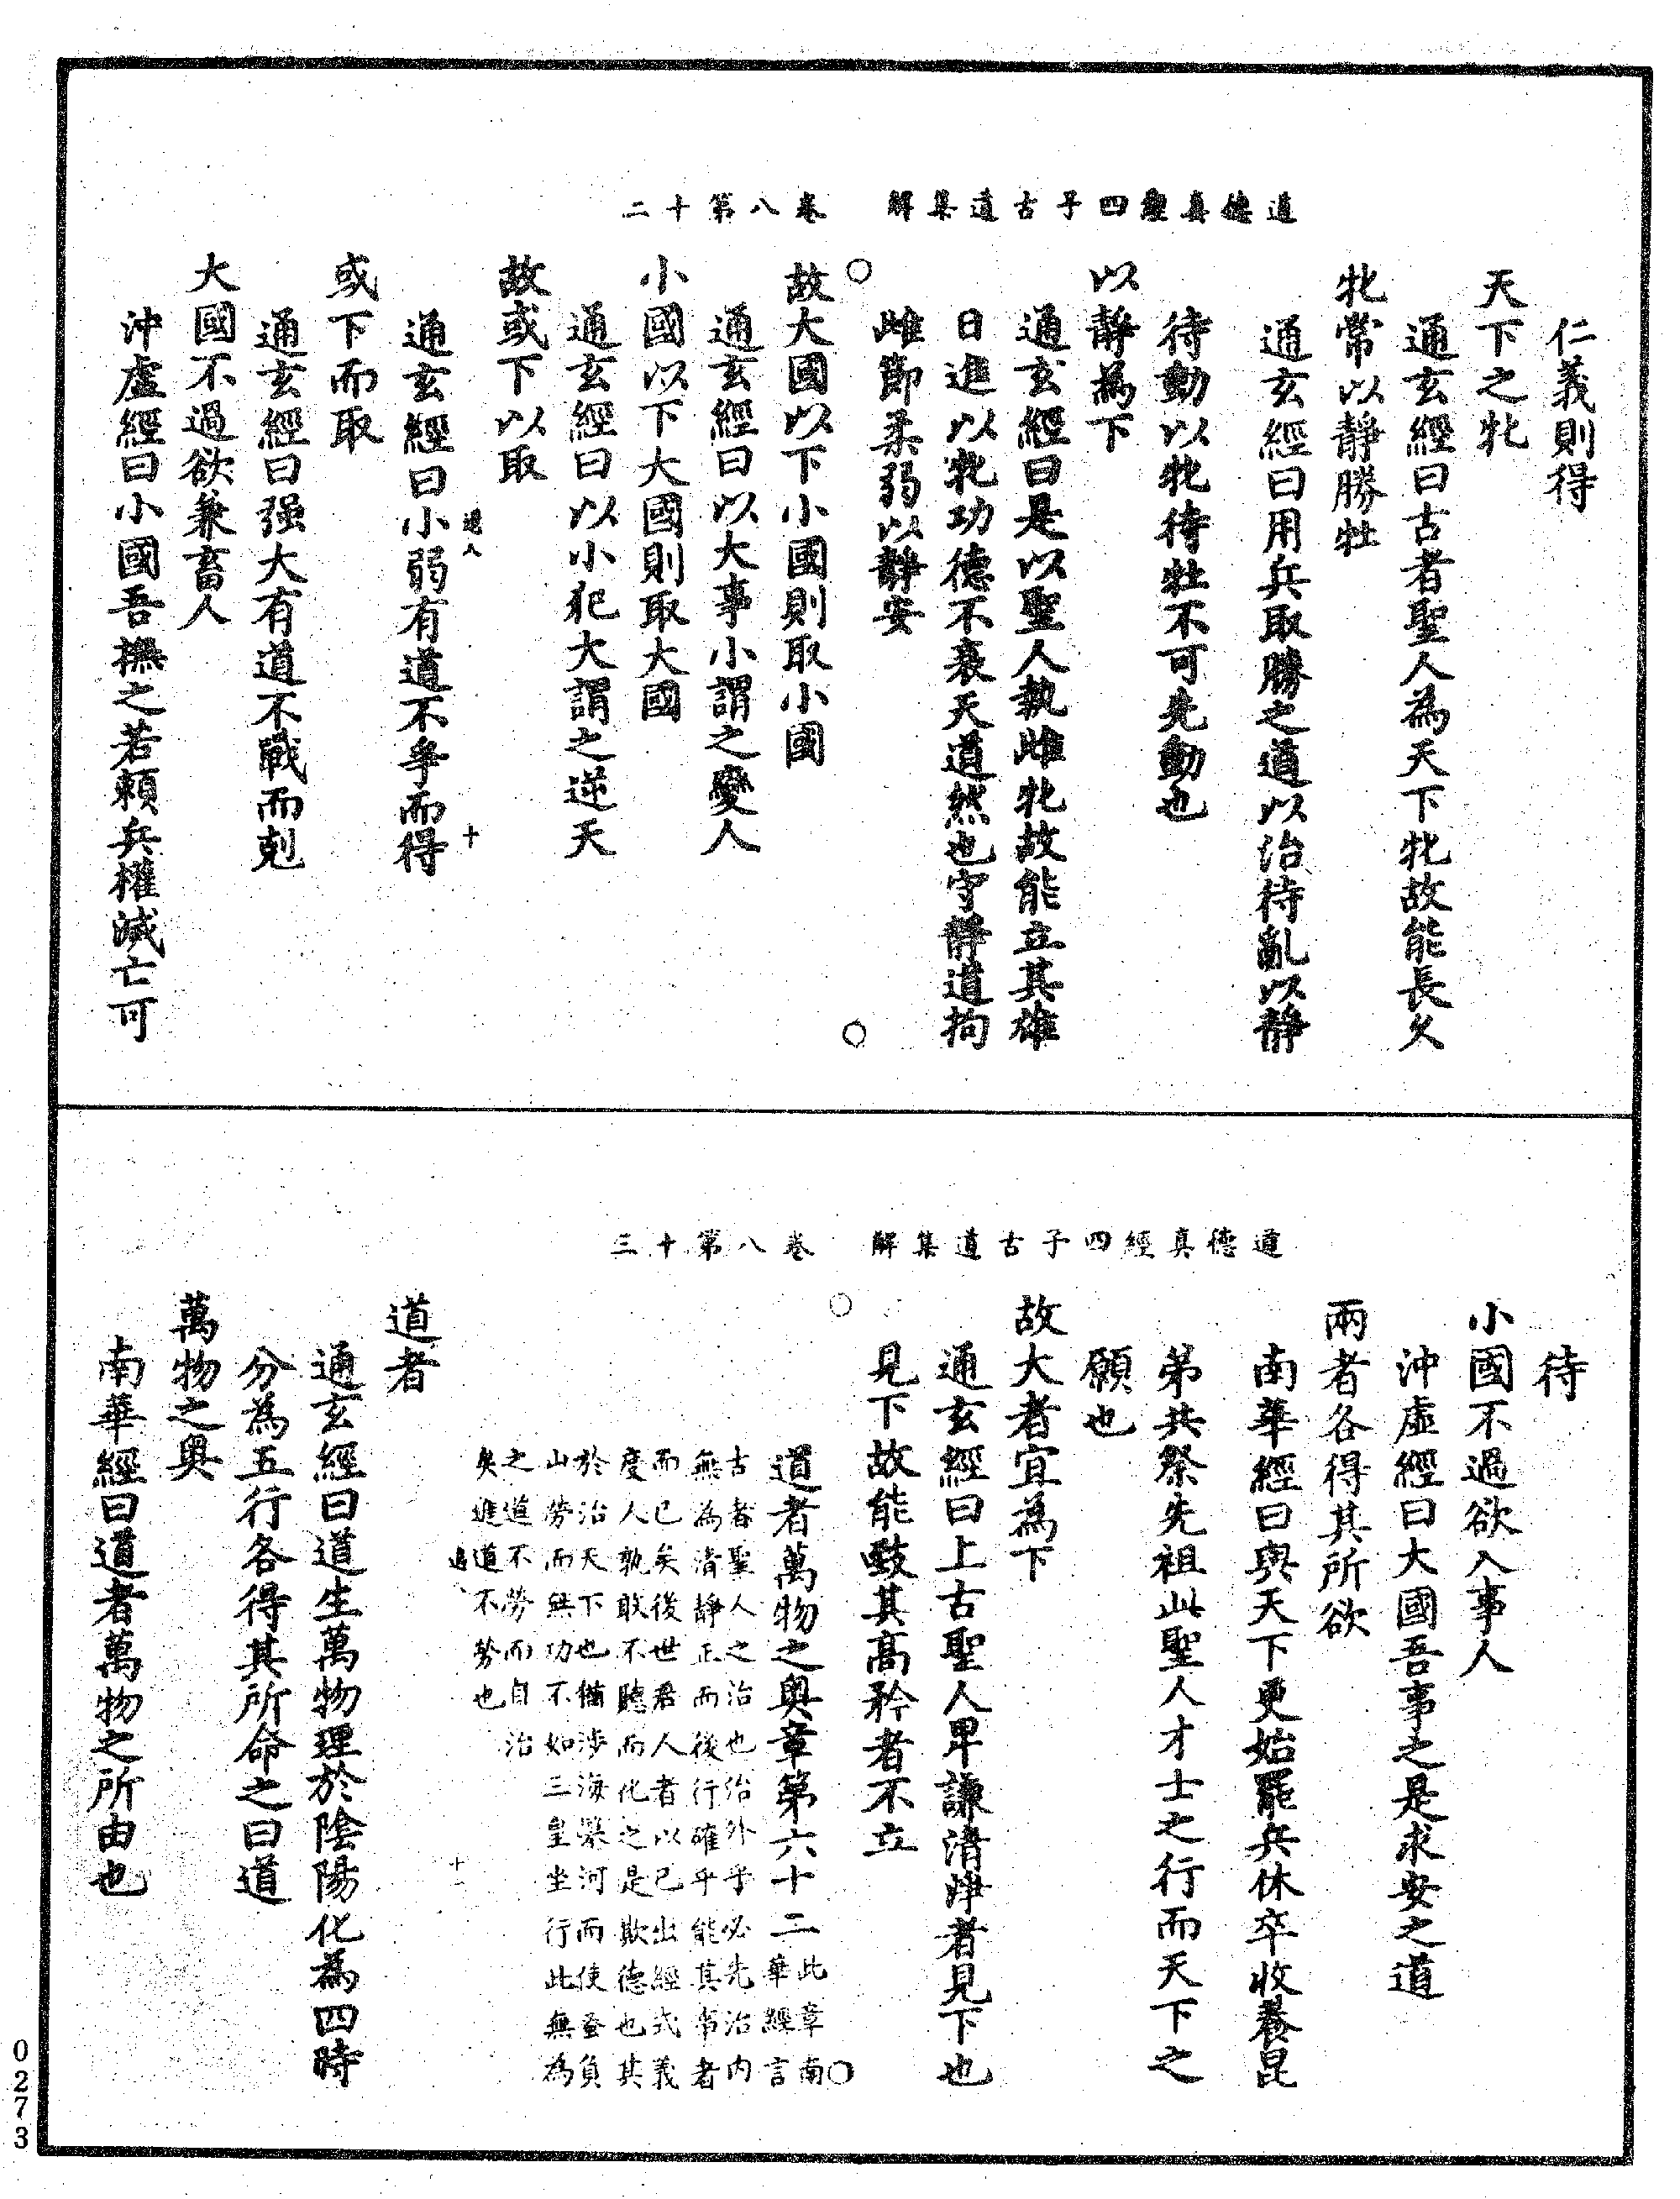 道德真經四子古道集解　卷八第十二
仁義則得
天下之牝
通玄經曰古者聖人為天下牝故能長久
牝常以靜勝牡
通玄經曰用兵取勝之道以治待亂以靜
待動以牝待牡不可先動也
以靜為下
通玄經曰是以聖人執雌牝故能立其雄
日進以牝功德不衰天道然也守靜道拘
雌節柔弱以靜安
故大國以下小國則取小國
通玄經曰以大事小謂之變人
小國以下大國則取大國
通玄經曰以小犯大謂之逆天
故或下以取
過八　十
通玄經曰小弱有道不爭而得
或下而取
通玄經曰强大有道不戰而剋
大國不過欲兼畜人
沖虛經曰小國吾撫之若賴兵權滅亡可
道德真經四子古道集解　卷八第十三
待
小國不過欲入事人
沖虛經曰大國吾事之是求安之道
兩者各得其所欲
南華經曰與天下更始罷兵休卒收養昆
弟共祭先祖此聖人才士之行而天下之
願也
故大者宜為下
通玄經曰上古聖人卑謙清淨者見下也
見下故能致其高矜者不立
道者萬物之奧章第六十二此章南華經言
古者聖人之治也治外乎必先治內
無為清靜正而後行確乎能其常者
而已矣後世君人者以己出經式義
度人孰敢不聽而化之是欺德也其
於治天下也猶涉海鑿河而使蚉負
山勞而無功不如三皇坐行此無為
之道不勞而自治
矣進道不勞也
過　十一
道者
通玄經曰道生萬物理於陰陽化為四時
分為五行各得其所命之曰道
萬物之奧
南華經曰道者萬物之所由也
0273